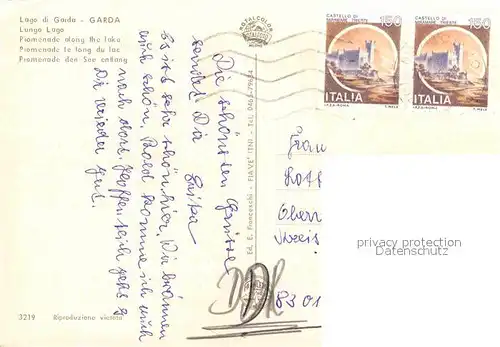 Lago di Garda - GARDA
Lungo Lago
Promenade along the lake
Promenade le long du lac
Promenade den See entlang
Die schönsten Grüsse
sendet Dir
Es ist sehr schön hier. Die
auch schön. Bald komme ich auch
nach dort. Hoffentlich geht's
Dir wieder gut.
3219 Riproduzione vietata
Ed. E. Franceschi - FIAVE' (TN) - Tel. 0465/
CASTELLO DI MIRAMARE TRIESTE 150
ITALIA
I.P.Z.S. ROMA
CASTELLO DI MIRAMARE TRIESTE 150
ITALIA
I.P.Z.S. ROMA
Frau
Kreis
DDR
8301
privacy protection
www.ansichtskarten-center.de